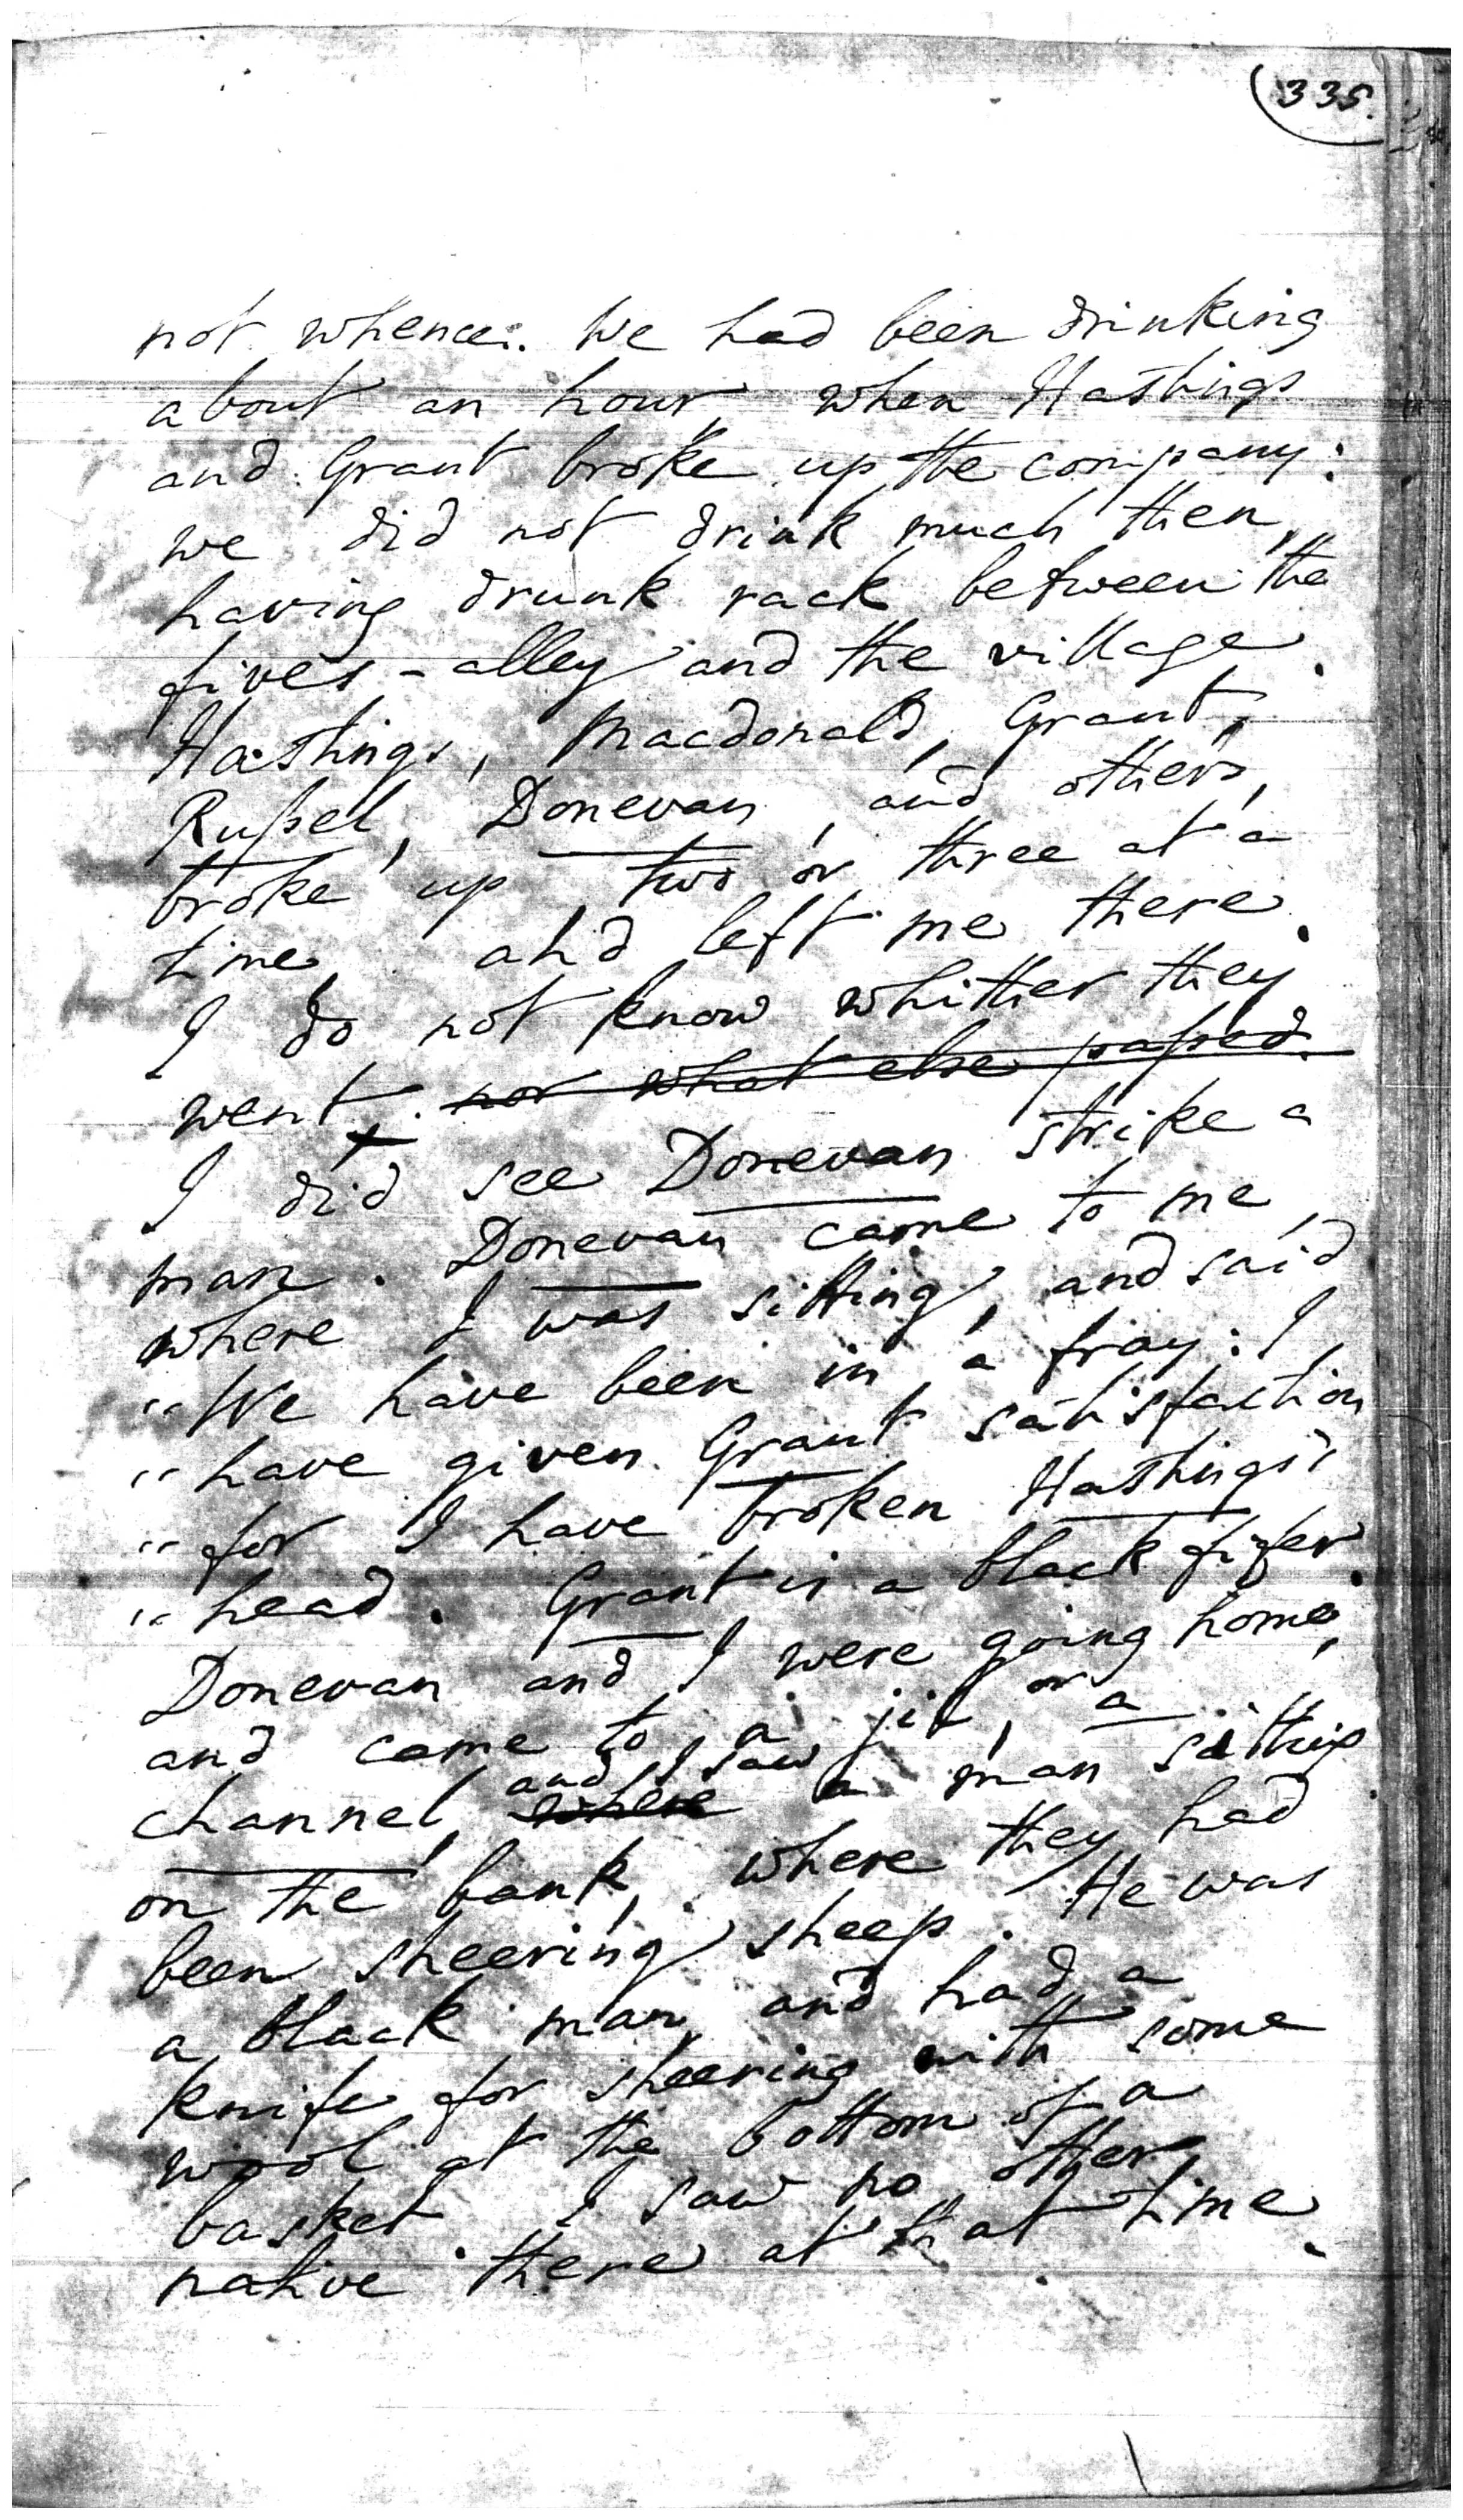 335.
not whence. We had been drinking
about an hour, when Hastings
and Grant broke up the company:
we did not drink much then,
having drunk rack between the
fives-alley and the village.
Hastings, Macdonald, Grant,
Rußel, Donevan, and others,
broke up, two or three at a
time, and left me there.
I do not know whither they
went. nor what else paßed.
I did see Donevan strike a
man. Donevan came to me,
where I was sitting, and said
"We have been in a fray: I
"have given Grant satisfaction
"for I have broken Hastings's
"head. Grant is a black fifer.
Donevan and I were going home,
and came to a jil, or a
channel, where and I saw a man sitting
on the bank, where they had
been sheering sheep. He was
a black man, and had a
knife for sheering with some
wool at the bottom of a
basket. I saw no other
native there at that time.